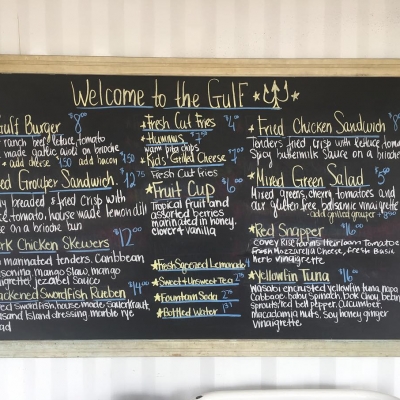 Welcome to the Gulf
Gulf Burger $8
ranch beef, lettuce, tomato
made garlic aioli on brioche
+ add cheese $.50 add bacon $.50
Grouper Sandwich $12.75
breaded & fried Crisp with
tomato, house made lemon dill
on a Brioche bun
Chicken Skewers $12.00
mannated tenders. Caribbean
Seasoning, mango slaw, mango
jezabel sauce
Swordfish Rueben $14.00
swordfish, house made Sauerkraut,
Island dressing marble rye
★ Fresh Cut Fries $4.00
★ Hummus
warm pita chips
★ Kids Grilled Cheese $7.00
Fresh Cut Fries
★ Fruit Cup $6.00
Tropical fruit and
assorted berries
marinated in honey,
clove & vanilla.
★ Fresh Squeezed Lemonade
★ Sweet + Unsweet Tea
★ Fountain Soda
★ Bottled Water
★ Fried Chicken Sandwich
Tenders fried crisp with lettuce,
Spicy buttermilk Sauce on a brioche
★ Mixed Green Salad
Mixed greens, cherry tomatoes and
our gluten free balsamic vinaigrette
+ add grilled grouper
★ Red Snapper $16.00
Covey Rise Farms Heirloom Tomatoes
Fresh Mozzarella Cheese, Fresh Basil
herb vinaigrette
★ Yellowfin Tuna $16.00
Wasabi encrusted yellowfin tuna, napa
Cabbage, baby Spinach, bok choy, bean
Sprouts, red bell pepper, Cucumber,
macadamia nuts, soy honey ginger
Vinaigrette.